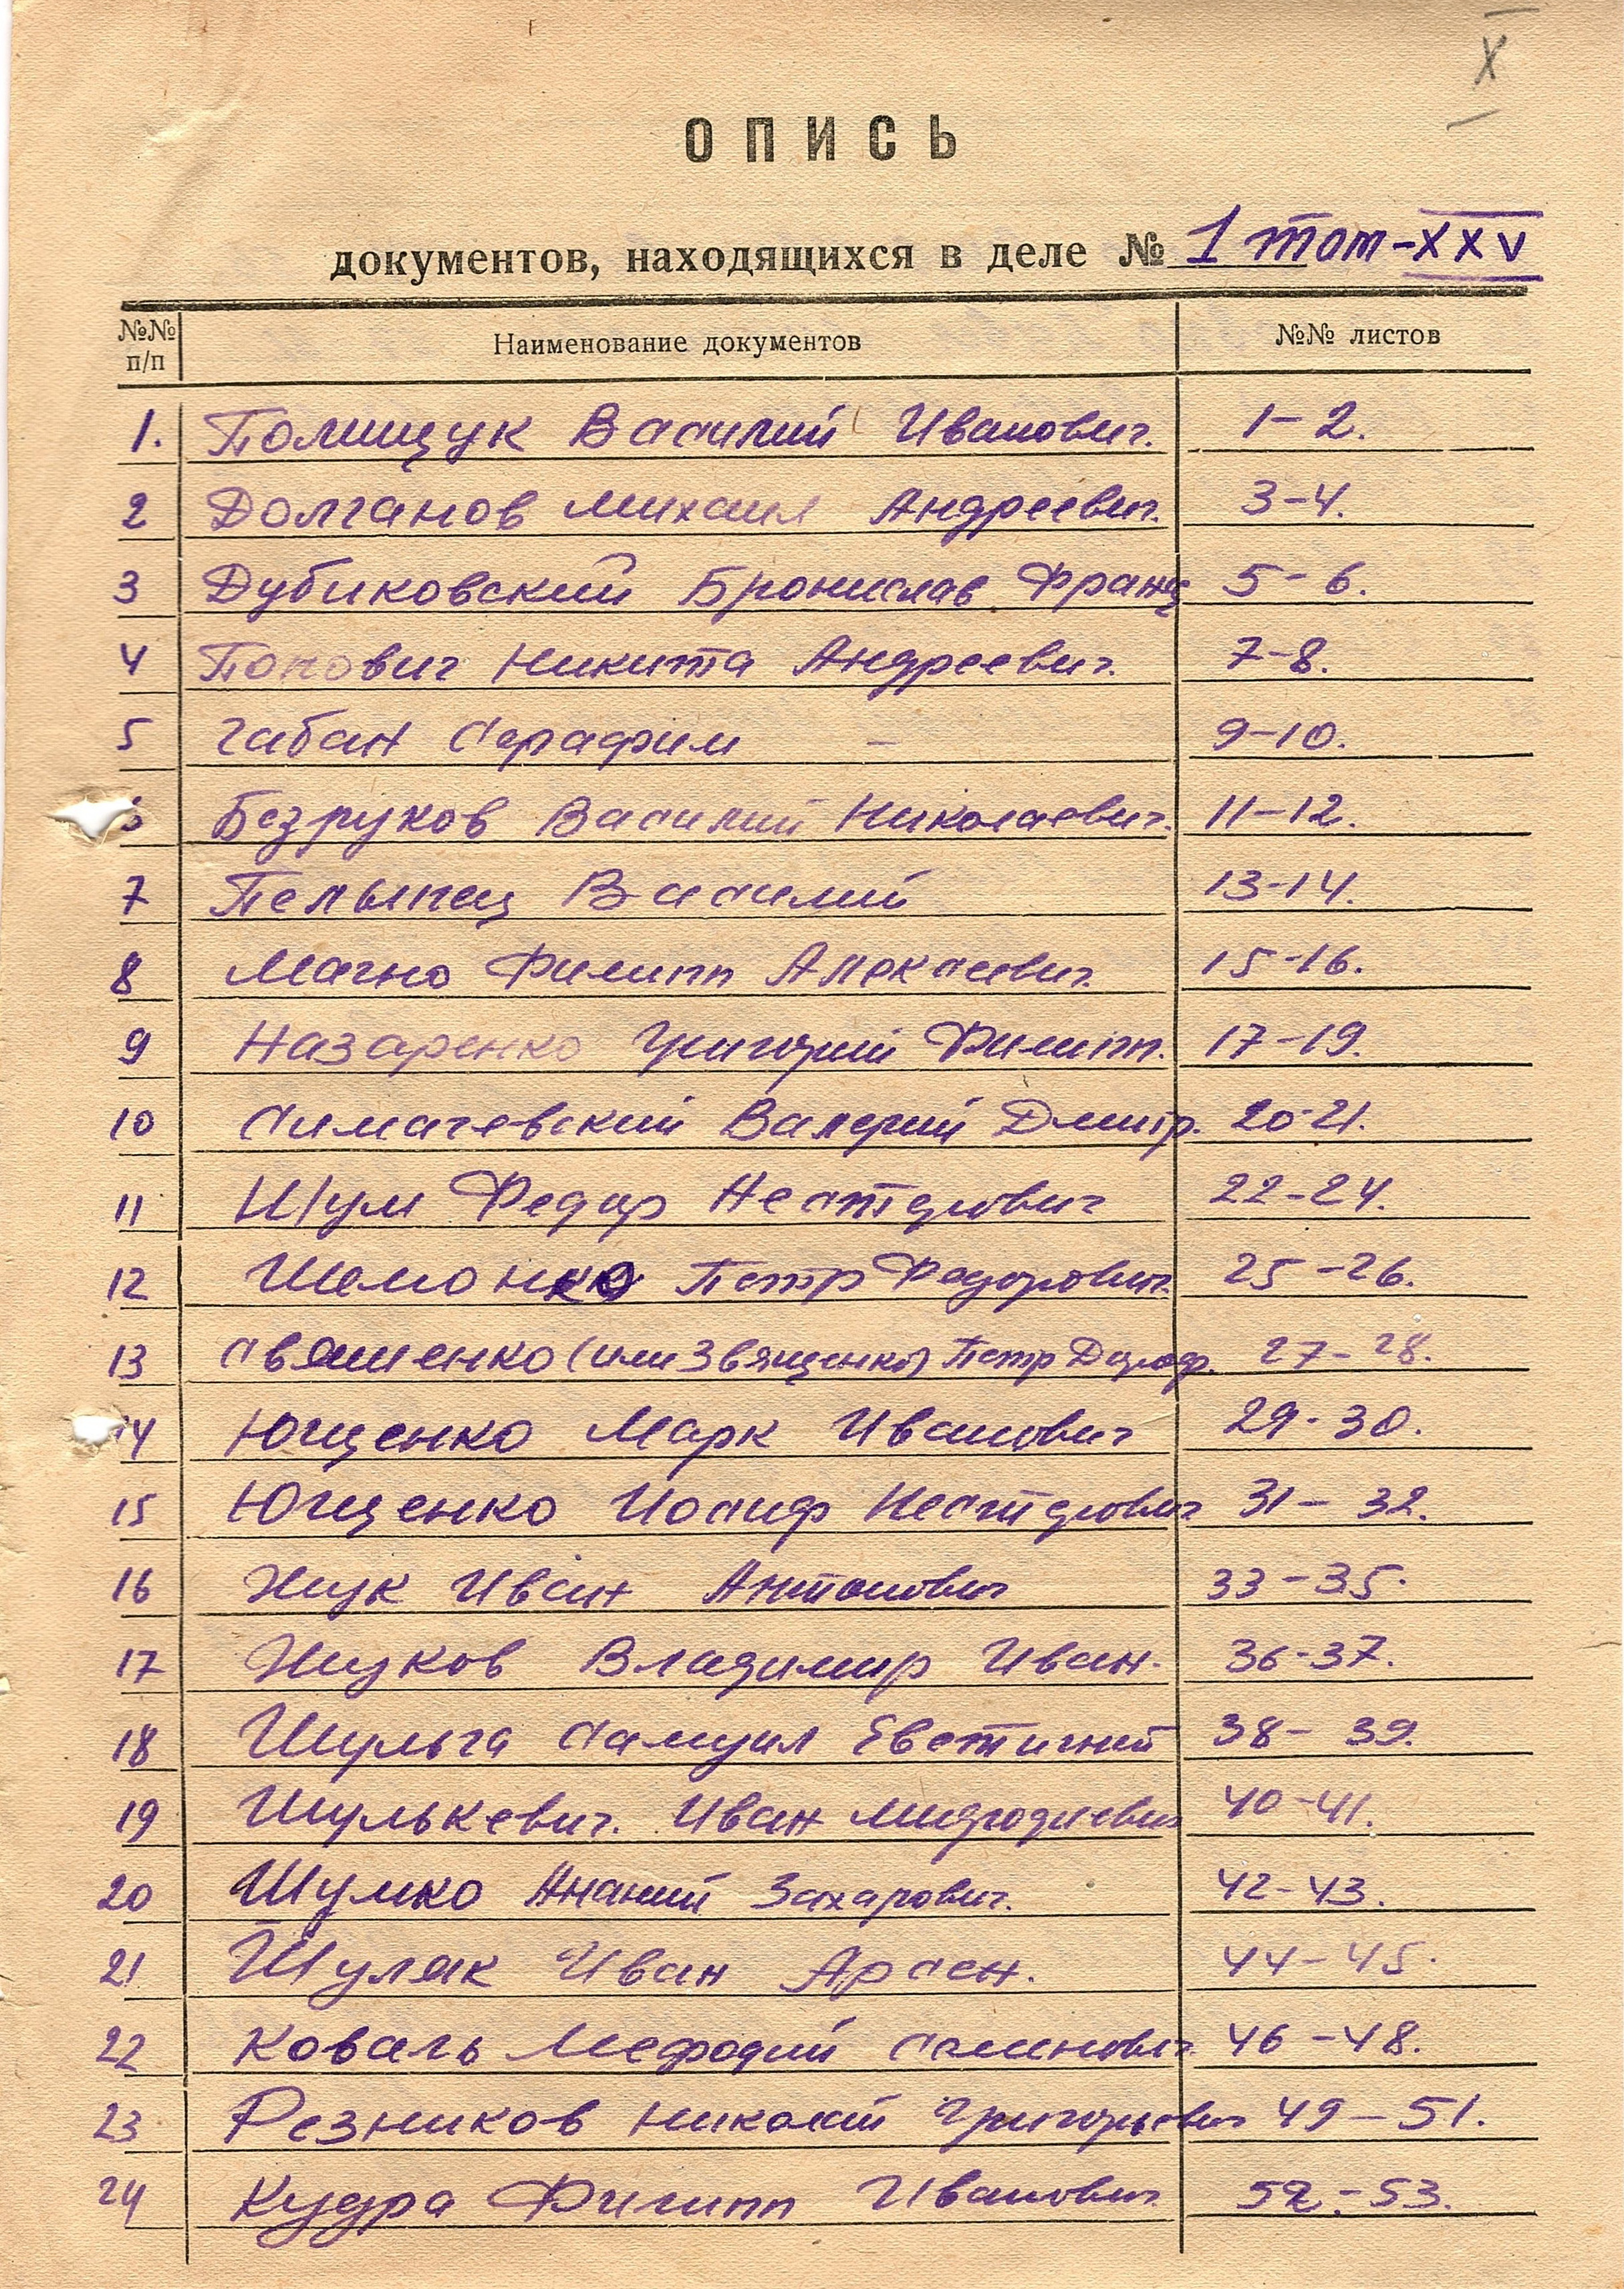 X
ОПИСЬ
документов, находящихся в деле № 1 том-XXV
№№ п/п Наименование документов №№ листов
1. Полищук Василий Иванович. 1-2.
2 Долганов Михаил Андреевич. 3-4.
3 Дубиковский Бронислав Франц 5-6.
4 Попович Никита Андреевич. 7-8.
5 Габан Серафим - 9-10.
6 Безруков Василий Николаевич. 11-12.
7 Василий 13-14.
8 Магно Филипп Алексеевич. 15-16.
9 Назаренко Григорий Филипп. 17-19.
10 Симачевский Валерий Дмитр. 20-21.
11 Шум Федор Нестерович 22-24.
12 Петр Федорович. 25-26.
13 Свяшенко (или Звященко) Петр 27-28.
14 Ющенко Марк Иванович 29-30.
15 Ющенко Иосиф Нестерович 31-32.
16 Жук Иван Антонович 33-35.
17 Жуков Владимир Иван. 36-37.
18 Шульга Самуил 38-39.
19 Шулькевич. Иван Мифодиевич 40-41.
20 Шумко Ананий Захарович. 42-43.
21 Шуляк Иван Арсен. 44-45.
22 Коваль Мефодий Семенович 46-48.
23 Резников Николай Григорьевич 49-51.
24 Кудра Филипп Иванович 52-53.